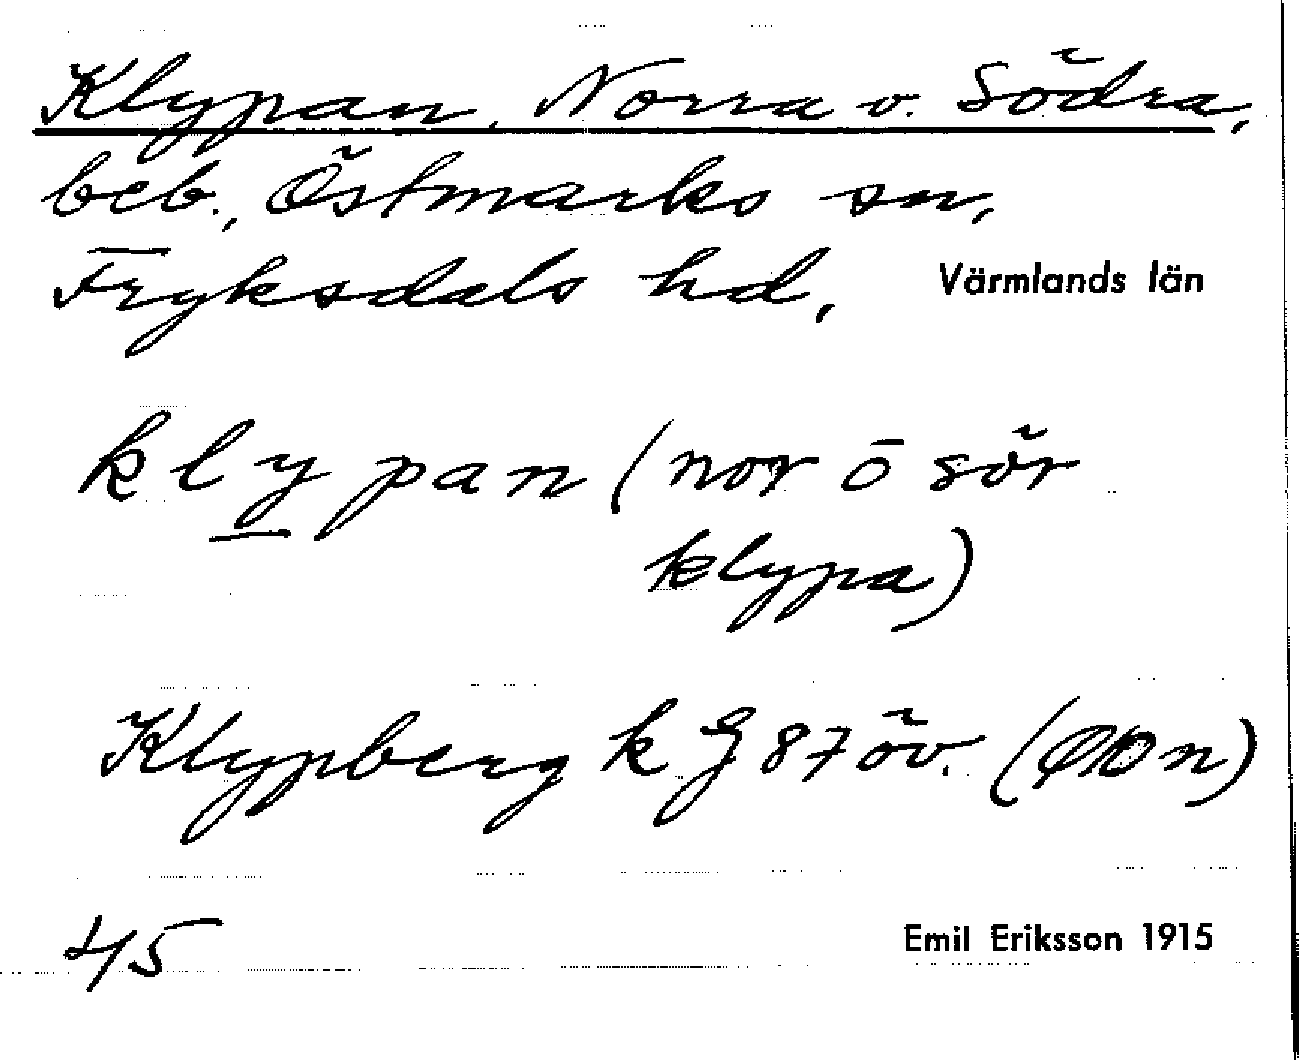 Klypan, Norra o. Södra,
beb., Östmarks sn,
Fryksdals hd, Värmlands län
klypan (nor ō sör
klypa)
Klypberg k G 87 öv.
45 Emil Eriksson 1915